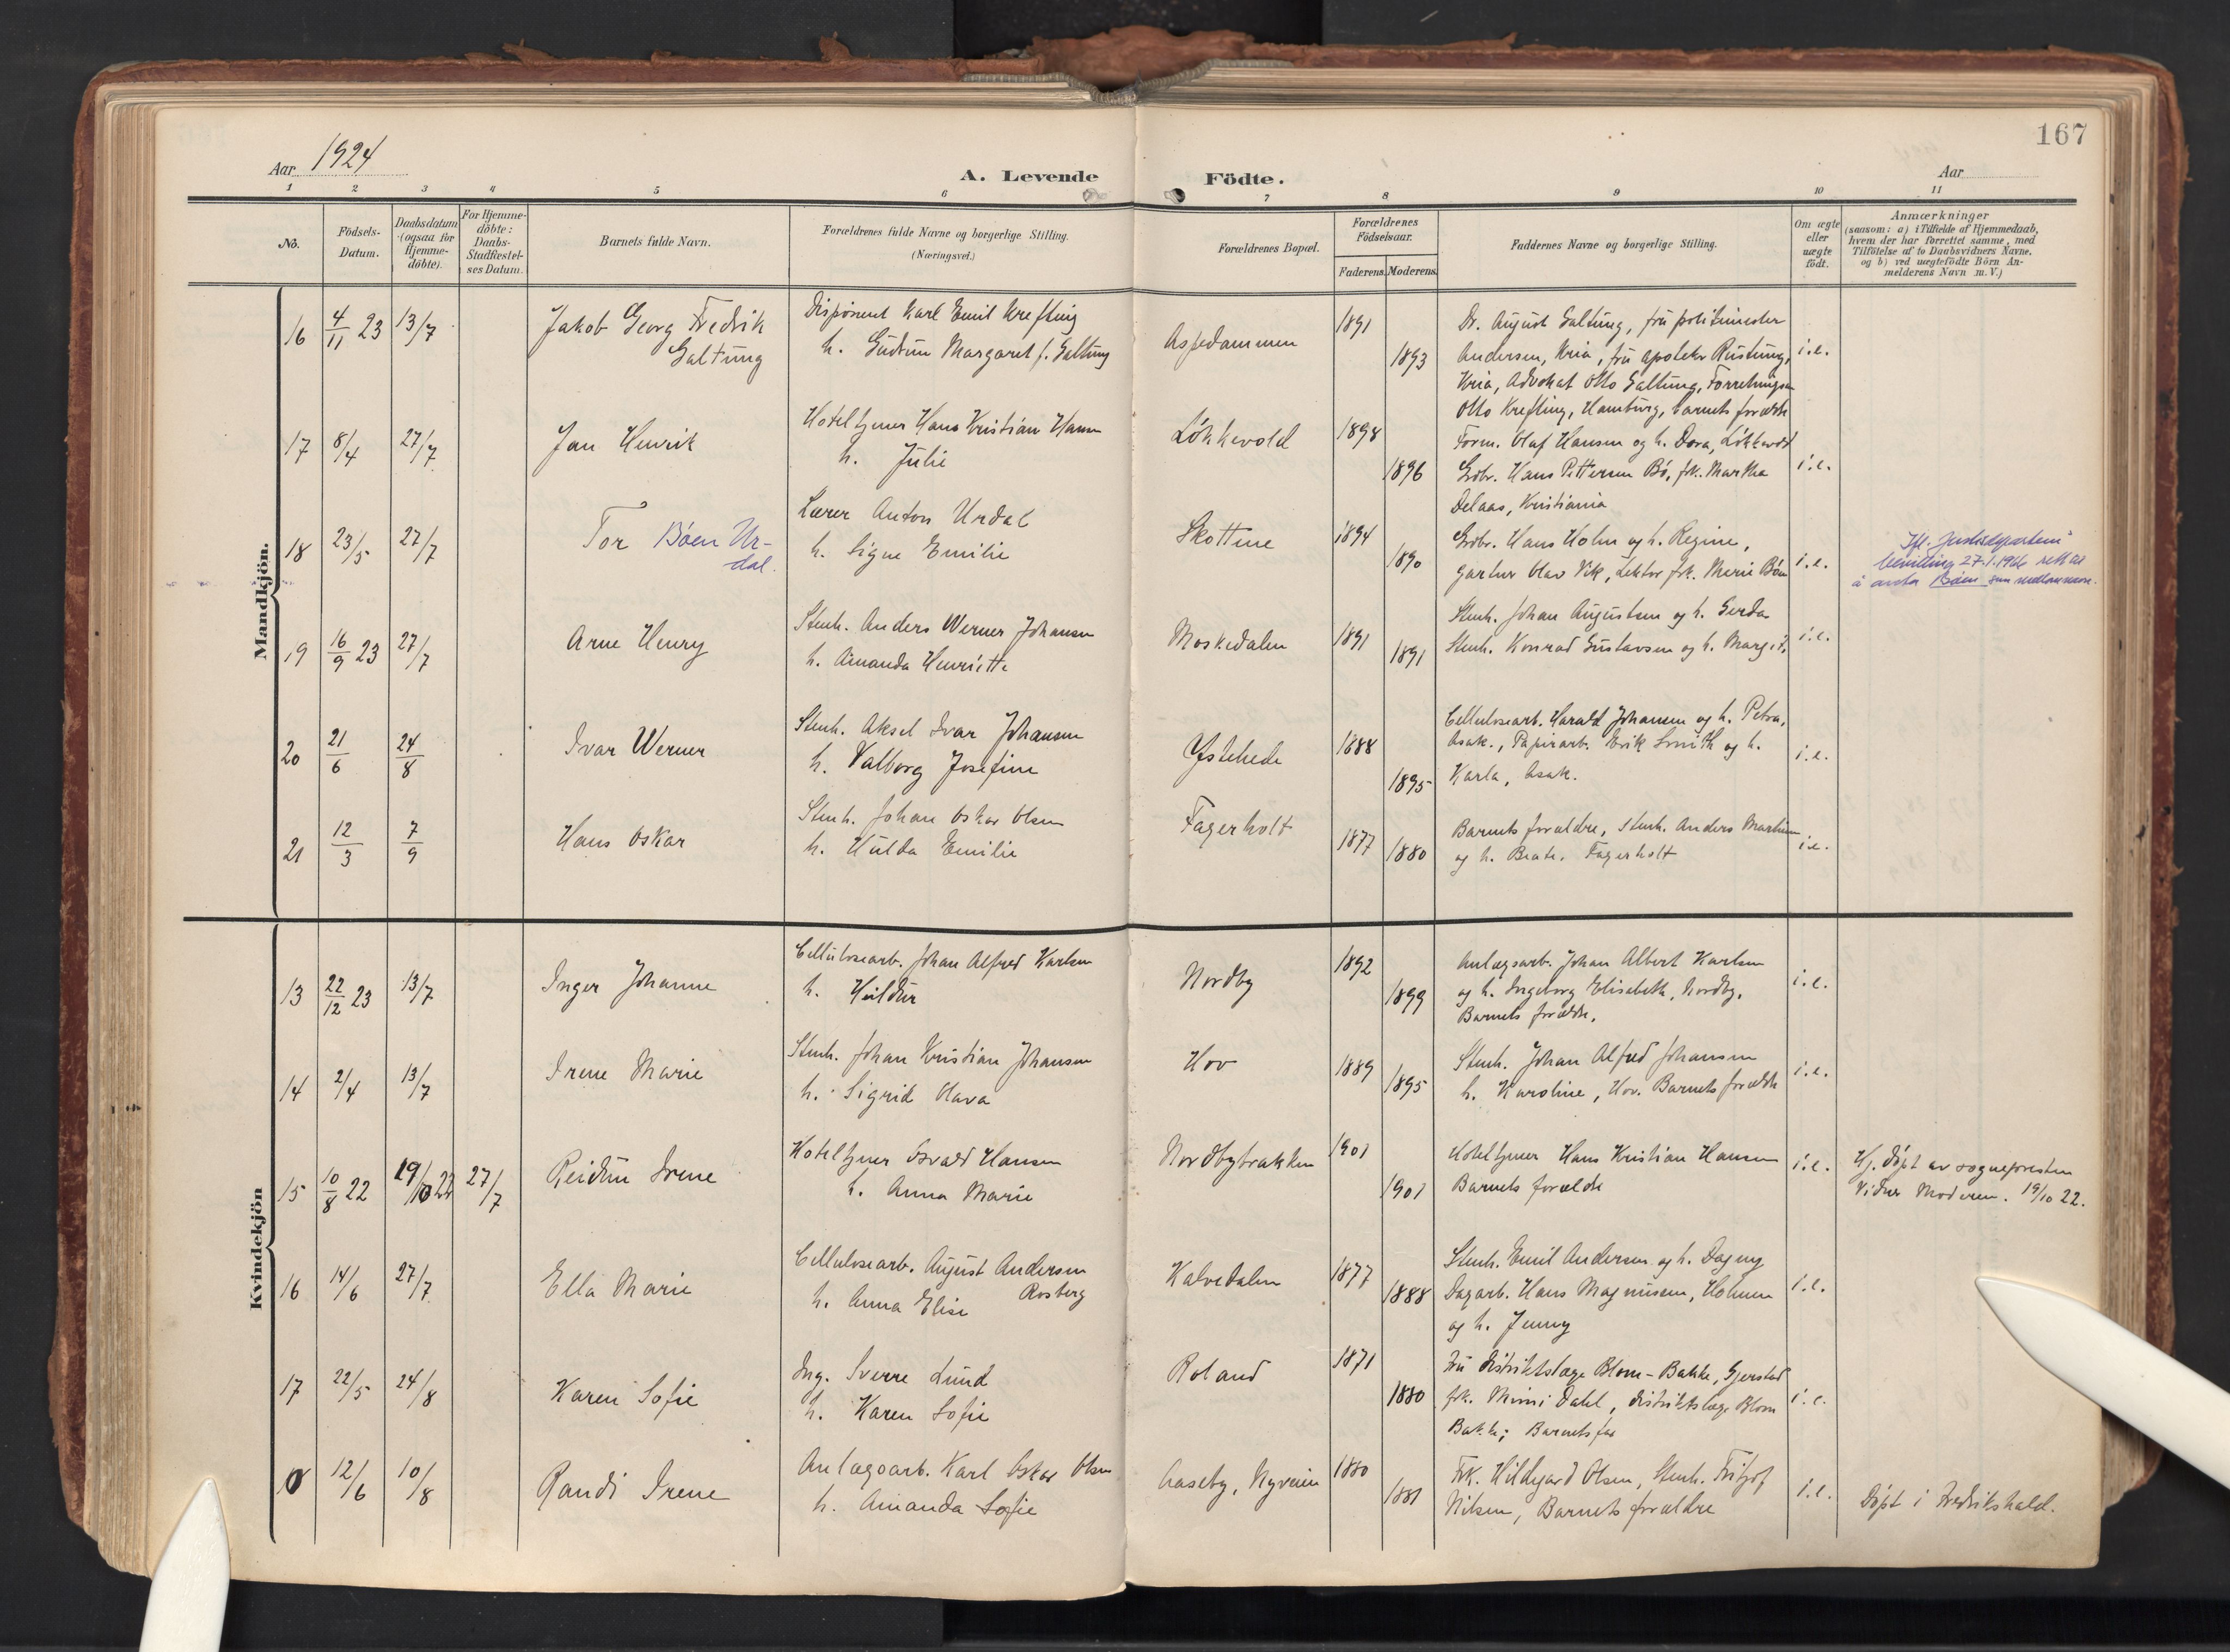 167
Aar 1924
A. Levende Födte.
Aar
1 2 3 4 5 6 7 8 9 10 11
No.
Födsels-
Datum.
Daabsdatum
(ogsaa for
Hjemme-
döbte).
For Hjemme-
döbte:
Daabs-
Stadfæstel-
ses Datum.
Barnets fulde Navn.
Forældrenes fulde Navne og borgerlige Stilling.
(Næringsvei.)
Forældrenes Bopæl.
Forældrenes
Födselsaar.
Faderens. Moderens.
Faddernes Navne og borgerlige Stilling.
Om ægte
eller
uægte
födt.
Anmærkninger
(saasom: a) i Tilfælde af Hjemmedaab,
hvem der har forrettet samme, med
Tilföielse af to Daabsvidners Navne,
og b) ved uægtefödte Börn An-
melderens Navn m. V.)
Mandkjön.
16 4/11 23 13/7 Jakob Georg Fredrik
Galtung
Disponent Karl Emil Krefting
h. Gudrun Margaret f. Galtung
Aspedammen 1891 1893
Dr. August Galtung, fru politimester
Andersen, Kria, fru apoteker Rustung,
Kria, Advokat Otto Galtung,
Otto Krefting, Hamburg, barnets forældre
i.e.
17 8/4 27/7 Jan Henrik
Hoteltjener Hans Kristian Hansen
h. Julie
Lökkevold 1898 1896
Form. Olaf Hansen og h. Dora, Lökkevold
Grdbr. Hans Pettersen Bö, frk. Martha
Delaas, Kristiania
i.e.
18 23/5 27/7 Tor Böen Ur-
dal.
Lærer Anton Urdal
h. Signe Emilie
Skottene 1894 1890
Grdbr. Hans Holm og h. Regine,
gartner Olav Vik, Lektor frk. Marie Böen
i.e.
Ifl. Justisdepartem.
bevilling 27.1.1966 rett til
å anta Böen som mellomnavn.
19 16/9 23 27/7 Arne Henry
Stenh. Anders Werner Johansen
h. Amanda Henriette
Moskedalen 1891 1891
Stenh. Johan Augustsen og h. Gerda
Stenh. Konrad Gustavsen og h. Margit.
i.e.
20 21/6 24/8 Ivar Werner
Stenh. Aksel Ivar Johansen
h. Valborg Josefine
Ystehede 1888 1895
Cellulosearb. Harald Johansen og h. Petra,
Asak., Papirarb. Erik Smith og h.
Karla, Asak.
i.e.
21 12/3 7/9 Hans Oskar
Stenh. Johan Oskar Olsen
h. Hulda Emilie
Fagerholt 1877 1880
Barnets forældre, Stenh. Anders Martinsen
og h. Beate, Fagerholt
i.e.
Kvindekjön
13 22/12 23 13/7 Inger Johanne
Cellulosearb. Johan Alfred Karlsen
h. Huldur
Nordby 1892 1899
Anlægsarb. Johan Albert Karlsen
og h. Ingeborg Elisabeth, Nordby.
Barnets forældre.
i.e.
14 2/4 13/7 Irene Marie
Stenh. Johan Kristian Johansen
h. Sigrid Olava
Hov 1889 1895
Stenh. Johan Alfred Johansen
h. Karoline, Hov. Barnets forældre
i.e.
15 10/8 22 19/10 22 27/7 Reidun Irene
Hoteltjener Osvald Hansen
h. Anna Marie
Nordbytrakken 1901 1901
Hoteltjener Hans Kristian Hansen
Barnets forældre
i.e.
Hj. döpt av sognepresten
Vidner Moderen. 19/10 22.
16 14/6 27/7 Ella Marie
Cellulosearb. August Andersen
Rosberg
h. Anna Elise
Kalvedalen 1877 1888
Stenh. Emil Andersen og h. Dagny
Dagarb. Hans Magnussen, Holmen
og h. Jenny
i.e.
17 22/5 24/8 Karen Sofie
Ing. Sverre Lund
h. Karen Sofie
Roland 1871 1880
Fru distriktslæge Blom-Bakke, Gjerstad
frk. Mimi Dahl, distriktslæge Blom
Bakke; Barnets far
i.e.
0 12/6 10/8 Randi Irene
Anlægsarb. Karl Oskar Olsen
h. Amanda Sofie
Aaseby, Nyveien 1880 1881
Frk. Hildegard Olsen, Stenh. Fritjof
Nilsen, Barnets forældre
i.e.
Döpt i Fredrikshald.